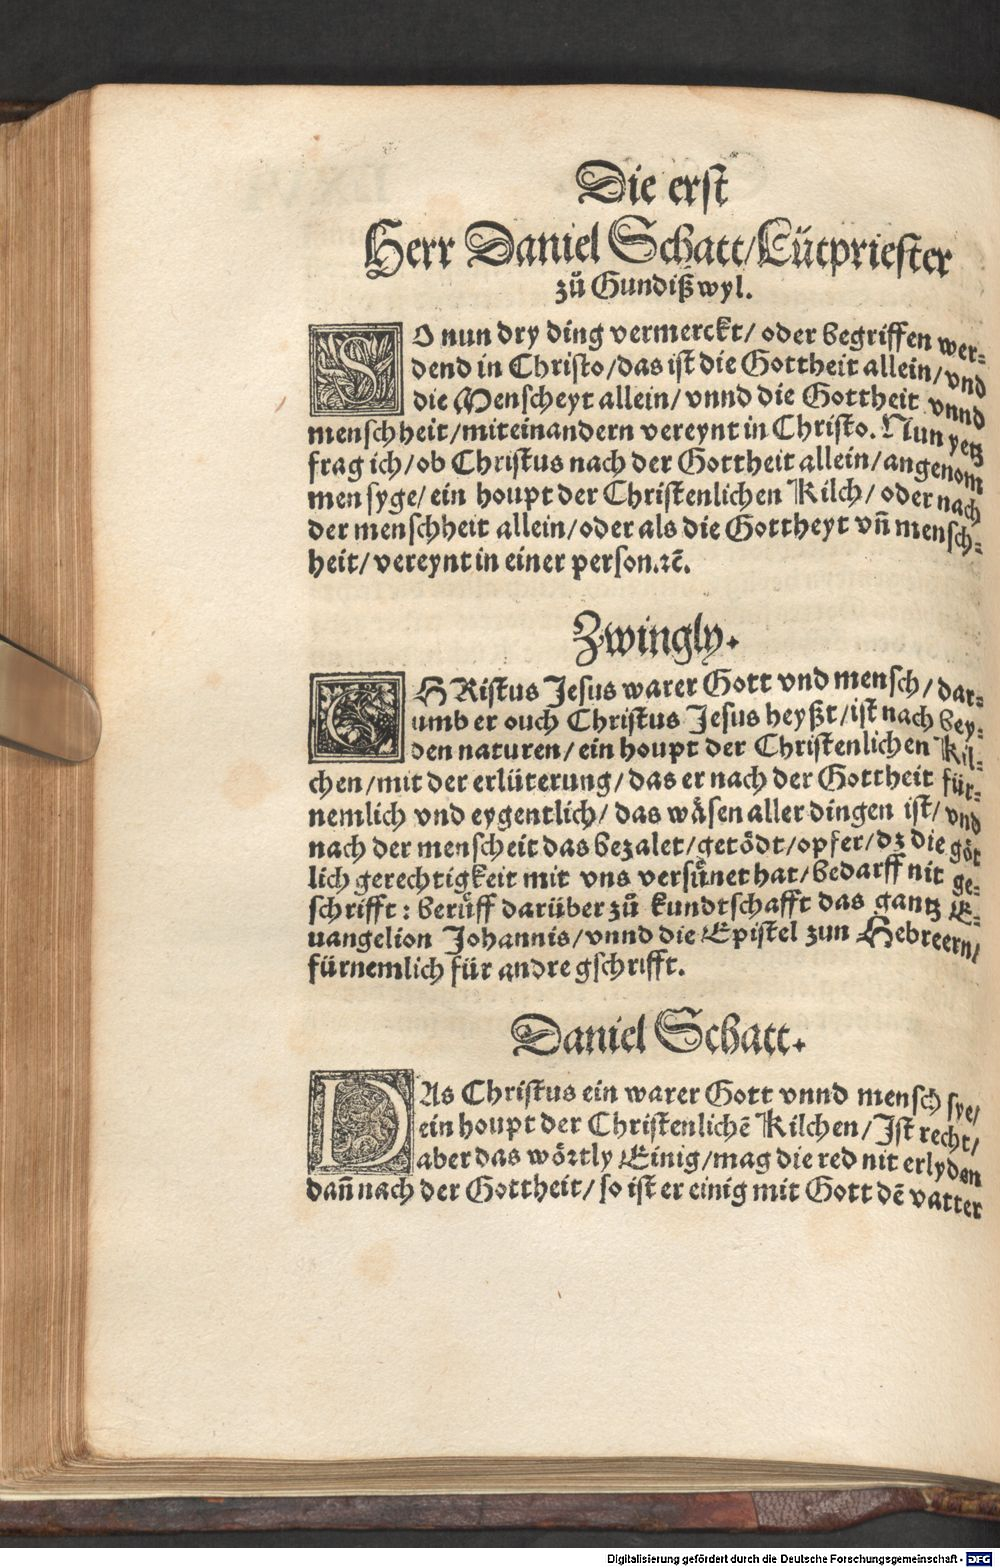 Die erst
Herr Daniel Schatt/Lütpriester
zů Gundißwyl.
SO nun dry ding vermerckt/ oder begriffen wer⸗
dend in Christo/das ist die Gottheit allein/vnd
die Menscheyt allein/ vnnd die Gottheit vnnd
menschheit/miteinandern vereynt in Christo. Nun yetz
frag ich/ob Christus nach der Gottheit allein/angenom
men syge/ ein houpt der Christenlichen Kilch/ oder nach
der menschheit allein/oder als die Gottheyt vn̄ mensch⸗
heit/ vereynt in einer person.ꝛc̄.
Zwingly.
CHRistus Jesus warer Gott vnd mensch/dar⸗
umb er ouch Christus Jesus heyßt/ist nach bey⸗
den naturen/ein houpt der Christenlichen Kil⸗
chen/mit der erlüterung/das er nach der Gottheit für⸗
nemlich vnd eygentlich/ das wäsen aller dingen ist/ vnd
nach der menscheit das bezalet/getödt/opfer/dz die göt
lich gerechtigkeit mit vns versůnet hat/bedarff nit ge⸗
schrifft: berůff darüber zů kundtschafft das gantz E⸗
uangelion Johannis/vnnd die Epistel zun Hebreern/
fürnemlich für andre gschrifft.
Daniel Schatt.
DAs Christus ein warer Gott vnnd mensch sye/
ein houpt der Christenlichē Kilchen/Ist recht/
aber das wörtly Einig/mag die red nit erlyden
dan̄ nach der Gottheit/so ist er einig mit Gott dē vatter
Digitalisierung gefördert durch die Deutsche Forschungsgemeinschaft - DFG